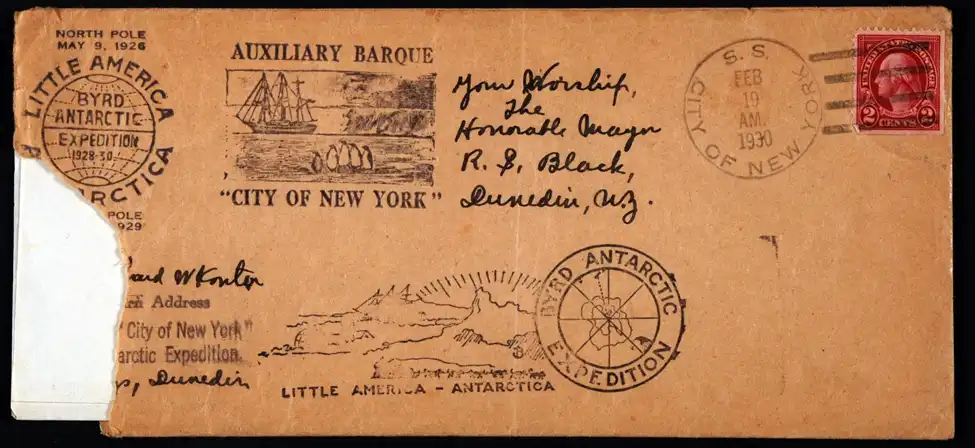 NORTH POLE
MAY 9, 1926
LITTLE AMERICA
BYRD
ANTARCTIC
EXPEDITION
1928-30
A RCTICA
POLE
929
AUXILIARY BARQUE
"CITY OF NEW YORK"
Your Worship,
The
Honorable Mayor
R. S. Black,
Dunedin, N.Z.
S. S.
CITY OF NEW YORK
FEB
19
AM.
1930
UNITED STATES POSTAGE
2 CENTS 2
ard W Konter
rn Address
"City of New York"
arctic Expedition.
Dunedin
LITTLE AMERICA - ANTARCTICA
BYRD ANTARCTIC
EXPEDITION